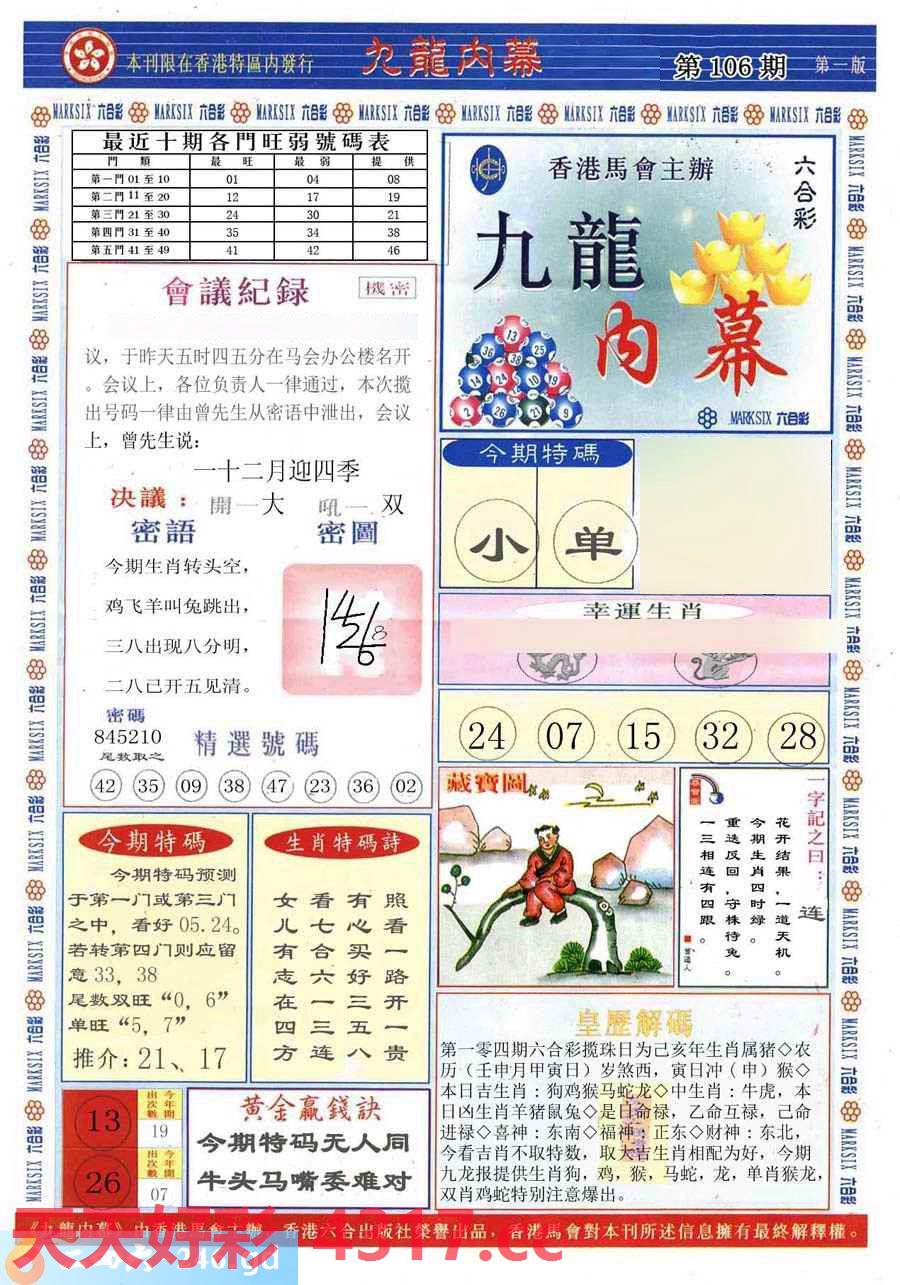 本刊限在香港特區内發行
九龍内幕
第 106 期
第一版
MARKSIX 六合彩
最近十期各門旺弱號碼表
門 類 最 旺 最 弱 提 供
第一門 01 至 10 01 04 08
第二門 11 至 20 12 17 19
第三門 21 至 30 24 30 21
第四門 31 至 40 35 34 38
第五門 41 至 49 41 42 46
會議紀録
機密
议，于昨天五时四五分在马会办公楼名开
。会议上，各位负责人一律通过，本次揽
出号码一律由曾先生从密语中泄出，会议
上，曾先生说：
一十二月迎四季
决議： 開一大 吼一 双
密語
密圖
今期生肖转头空，
鸡飞羊叫兔跳出，
三八出现八分明，
二八己开五见清。
密碼
845210
尾数取之
精選號碼
42 35 09 38 47 23 36 02
香港馬會主辦
六合彩
九龍
内幕
13
36 38 25
14 24 10 19
2 26 21 9
MARKSIX 六合彩
今期特碼
小 单
幸運生肖
24 07 15 32 28
藏寶圖
一字記之曰：
连
花开结果，一道天机。
今期生肖四时绿。
重迭反回，守株待兔。
一三相连有四跟。
曾道人
今期特碼
今期特码预测
于第一门或第三门
之中，看好 05.24。
若转第四门则应留
意 33，38
尾数双旺“0，6”
单旺“5，7”
推介：21、17
生肖特碼詩
女看有照
儿七心看
有合买一
志六好路
在一三开
四三五一
方连八贵
皇歷解碼
第一零四期六合彩揽珠日为己亥年生肖属猪◇农
历（壬申月甲寅日）岁煞西，寅日冲（申）猴◇
本日吉生肖：狗鸡猴马蛇龙◇中生肖：牛虎，本
日凶生肖羊猪鼠兔◇是日命禄，乙命互禄，己命
进禄◇喜神：东南◇福神：正东◇财神：东北，
今看吉肖不取特数，取大吉生肖相配为好，今期
九龙报提供生肖狗，鸡，猴，马蛇，龙，单肖猴龙，
双肖鸡蛇特别注意爆出。
13
今年開出次數
19
26
今年開出次數
07
黄金赢錢訣
今期特码无人同
牛头马嘴委难对
《九龍内幕》由香港馬會主辦，香港六合出版社榮譽出品，香港馬會對本刊所述信息擁有最終解釋權。
天天好彩 4317.cc
246.gd